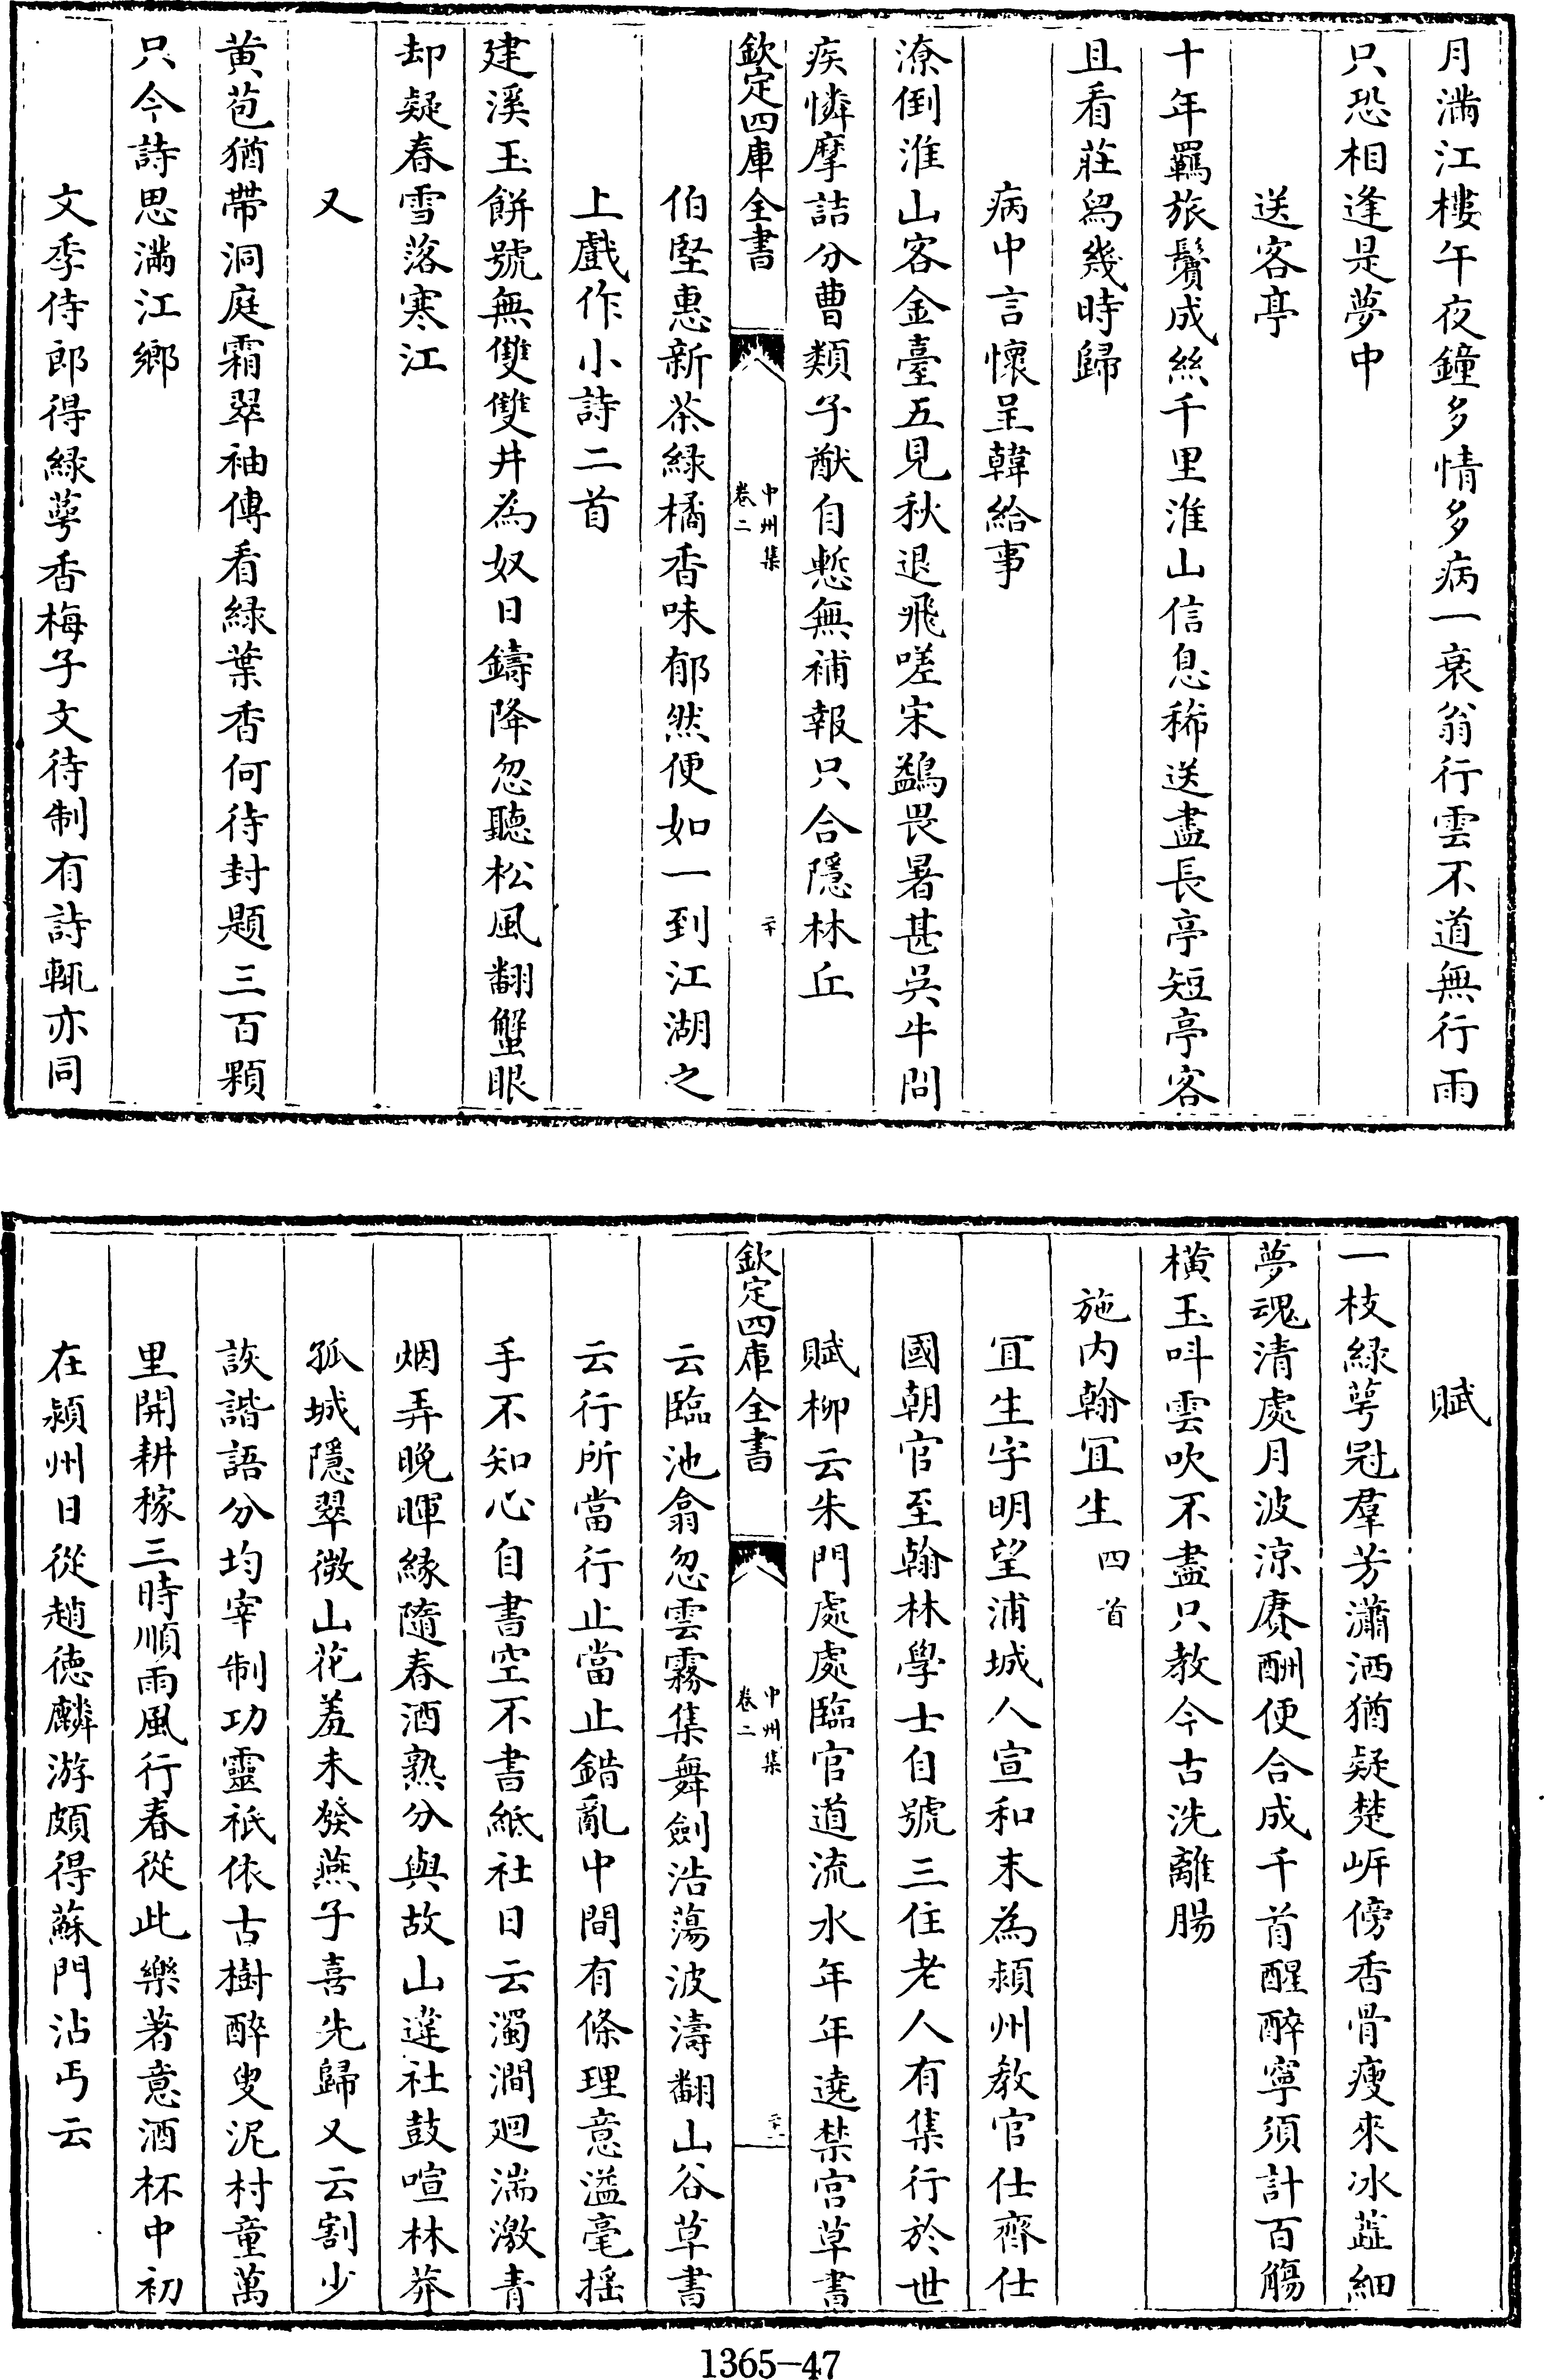 月滿江樓午夜鐘多情多病一衰翁行雲不道無行雨
只恐相逢是夢中
送客亭
十年羈旅鬢成絲千里淮山信息稀送盡長亭短亭客
且看莊舄幾時歸
病中言懷呈韓給事
潦倒淮山客金臺五見秋退飛嗟宋鷁畏暑甚吳牛問
疾憐摩詰分曹類子猷自慙無補報只合隱林丘
欽定四庫全書
中州集
卷二
二十
伯堅惠新茶綠橘香味郁然便如一到江湖之
上戲作小詩二首
建溪玉餅號無雙雙井為奴日鑄降忽聽松風翻蟹眼
却疑春雪落寒江
又
黄苞猶帶洞庭霜翠袖傳看綠葉香何待封題三百顆
只今詩思滿江鄉
文季侍郎得綠蕚香梅子文待制有詩輒亦同
賦
一枝綠萼冠羣芳瀟洒猶疑楚岍傍香骨瘦來冰蘂細
夢魂清處月波涼賡酬便合成千首醒醉寧須計百觴
橫玉呌雲吹不盡只教今古洗離腸
施内翰宜生四首
宜生字明望浦城人宣和末為潁州教官仕齊仕
國朝官至翰林學士自號三住老人有集行於世
賦柳云朱門處處臨官道流水年年遶禁宫草書
欽定四庫全書
中州集
卷二
二十一
云臨池翕忽雲霧集舞劍浩蕩波濤翻山谷草書
云行所當行止當止錯亂中間有條理意溢毫揺
手不知心自書空不書紙社日云濁澗廻湍激青
烟弄晚暉緣隨春酒熟分與故山違社鼓喧林莽
孤城隱翠微山花羞未發燕子喜先歸又云割少
詼諧語分均宰制功靈祇依古樹醉叟泥村童萬
里開耕稼三時順雨風行春從此樂著意酒杯中初
在潁州日從趙德麟游頗得蘇門沾丐云
1365-47